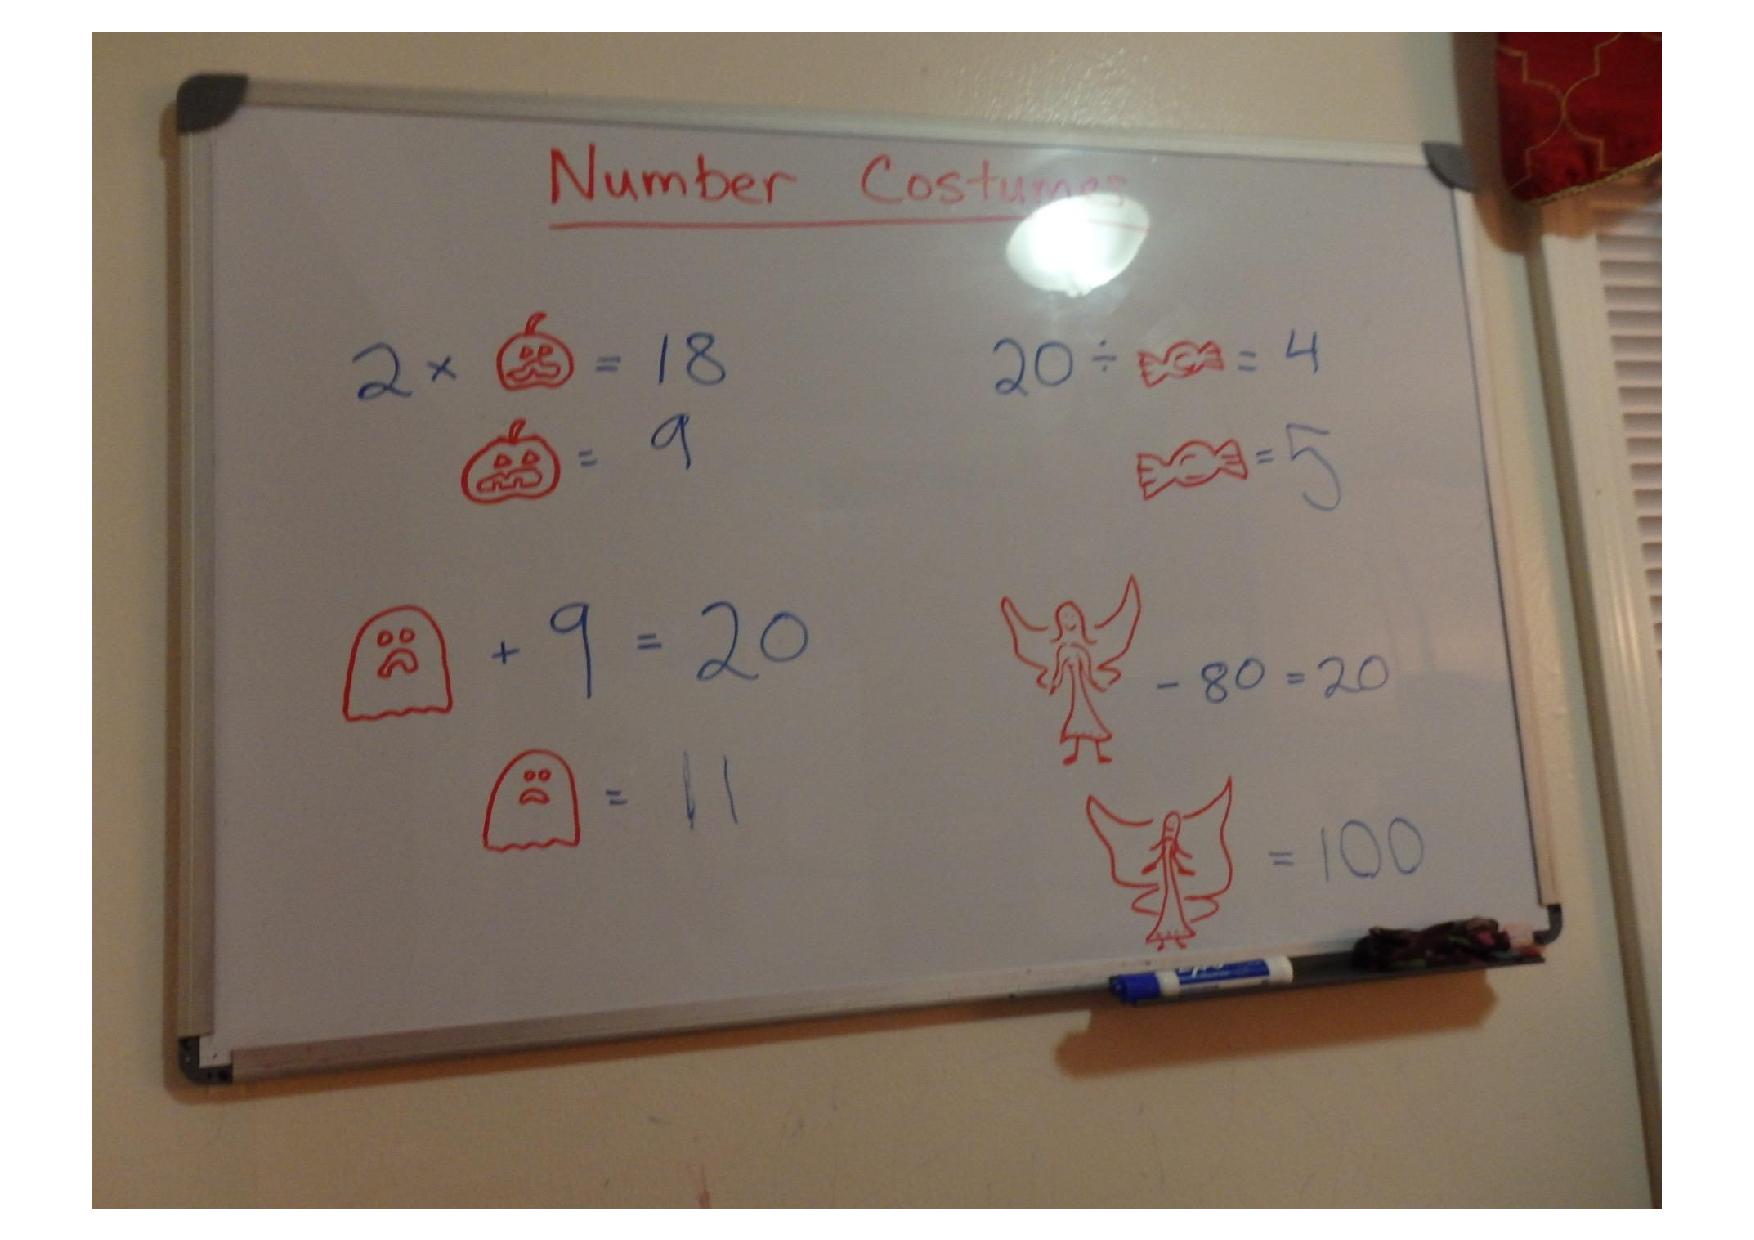 Number Costumes
2 × = 18
= 9
20 ÷ = 4
= 5
+ 9 = 20
= 11
- 80 = 20
= 100